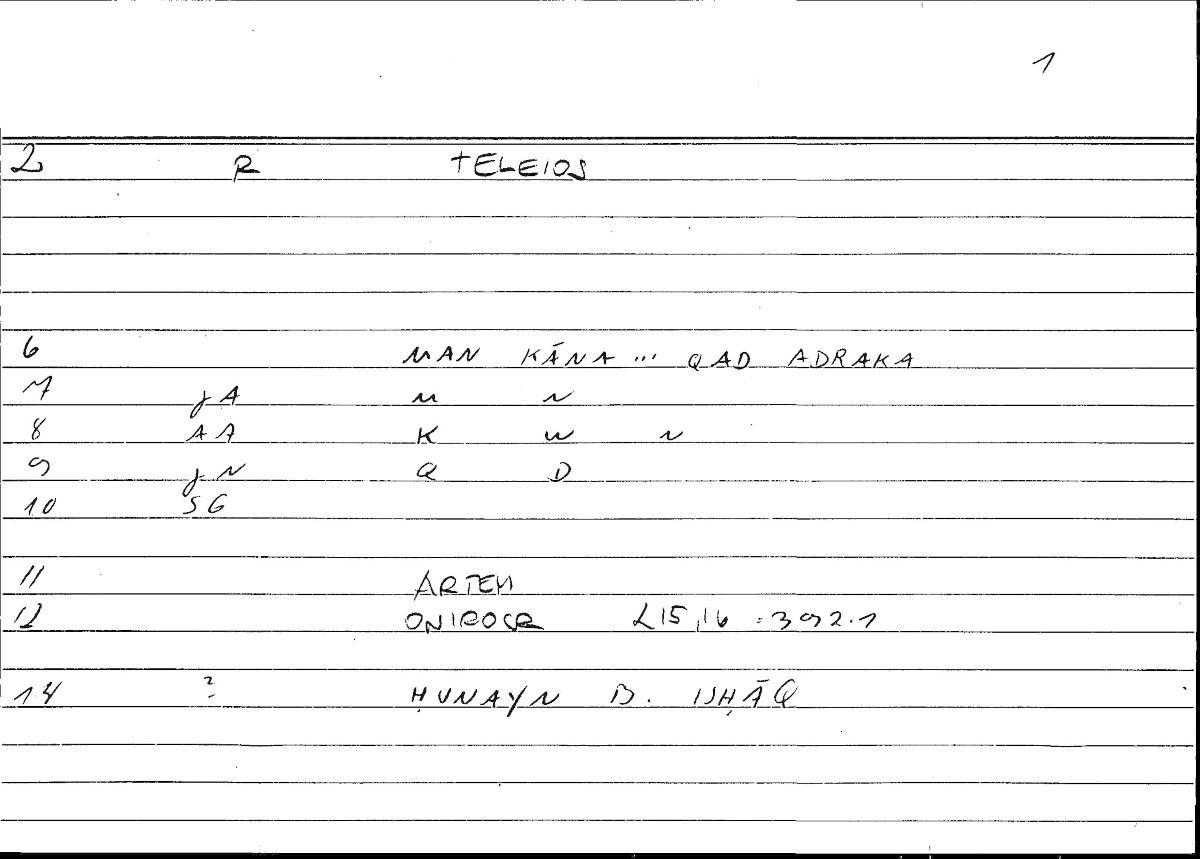 1
2 R TELEIOS
6 MAN KĀNA ... QAD ADRAKA
7 JA M N
8 AA K W N
9 JN Q D
10 SG
11 ARTEM
12 ONIROCR 215,16 = 392.1
14 ? ḤUNAYN B. ISḤĀQ